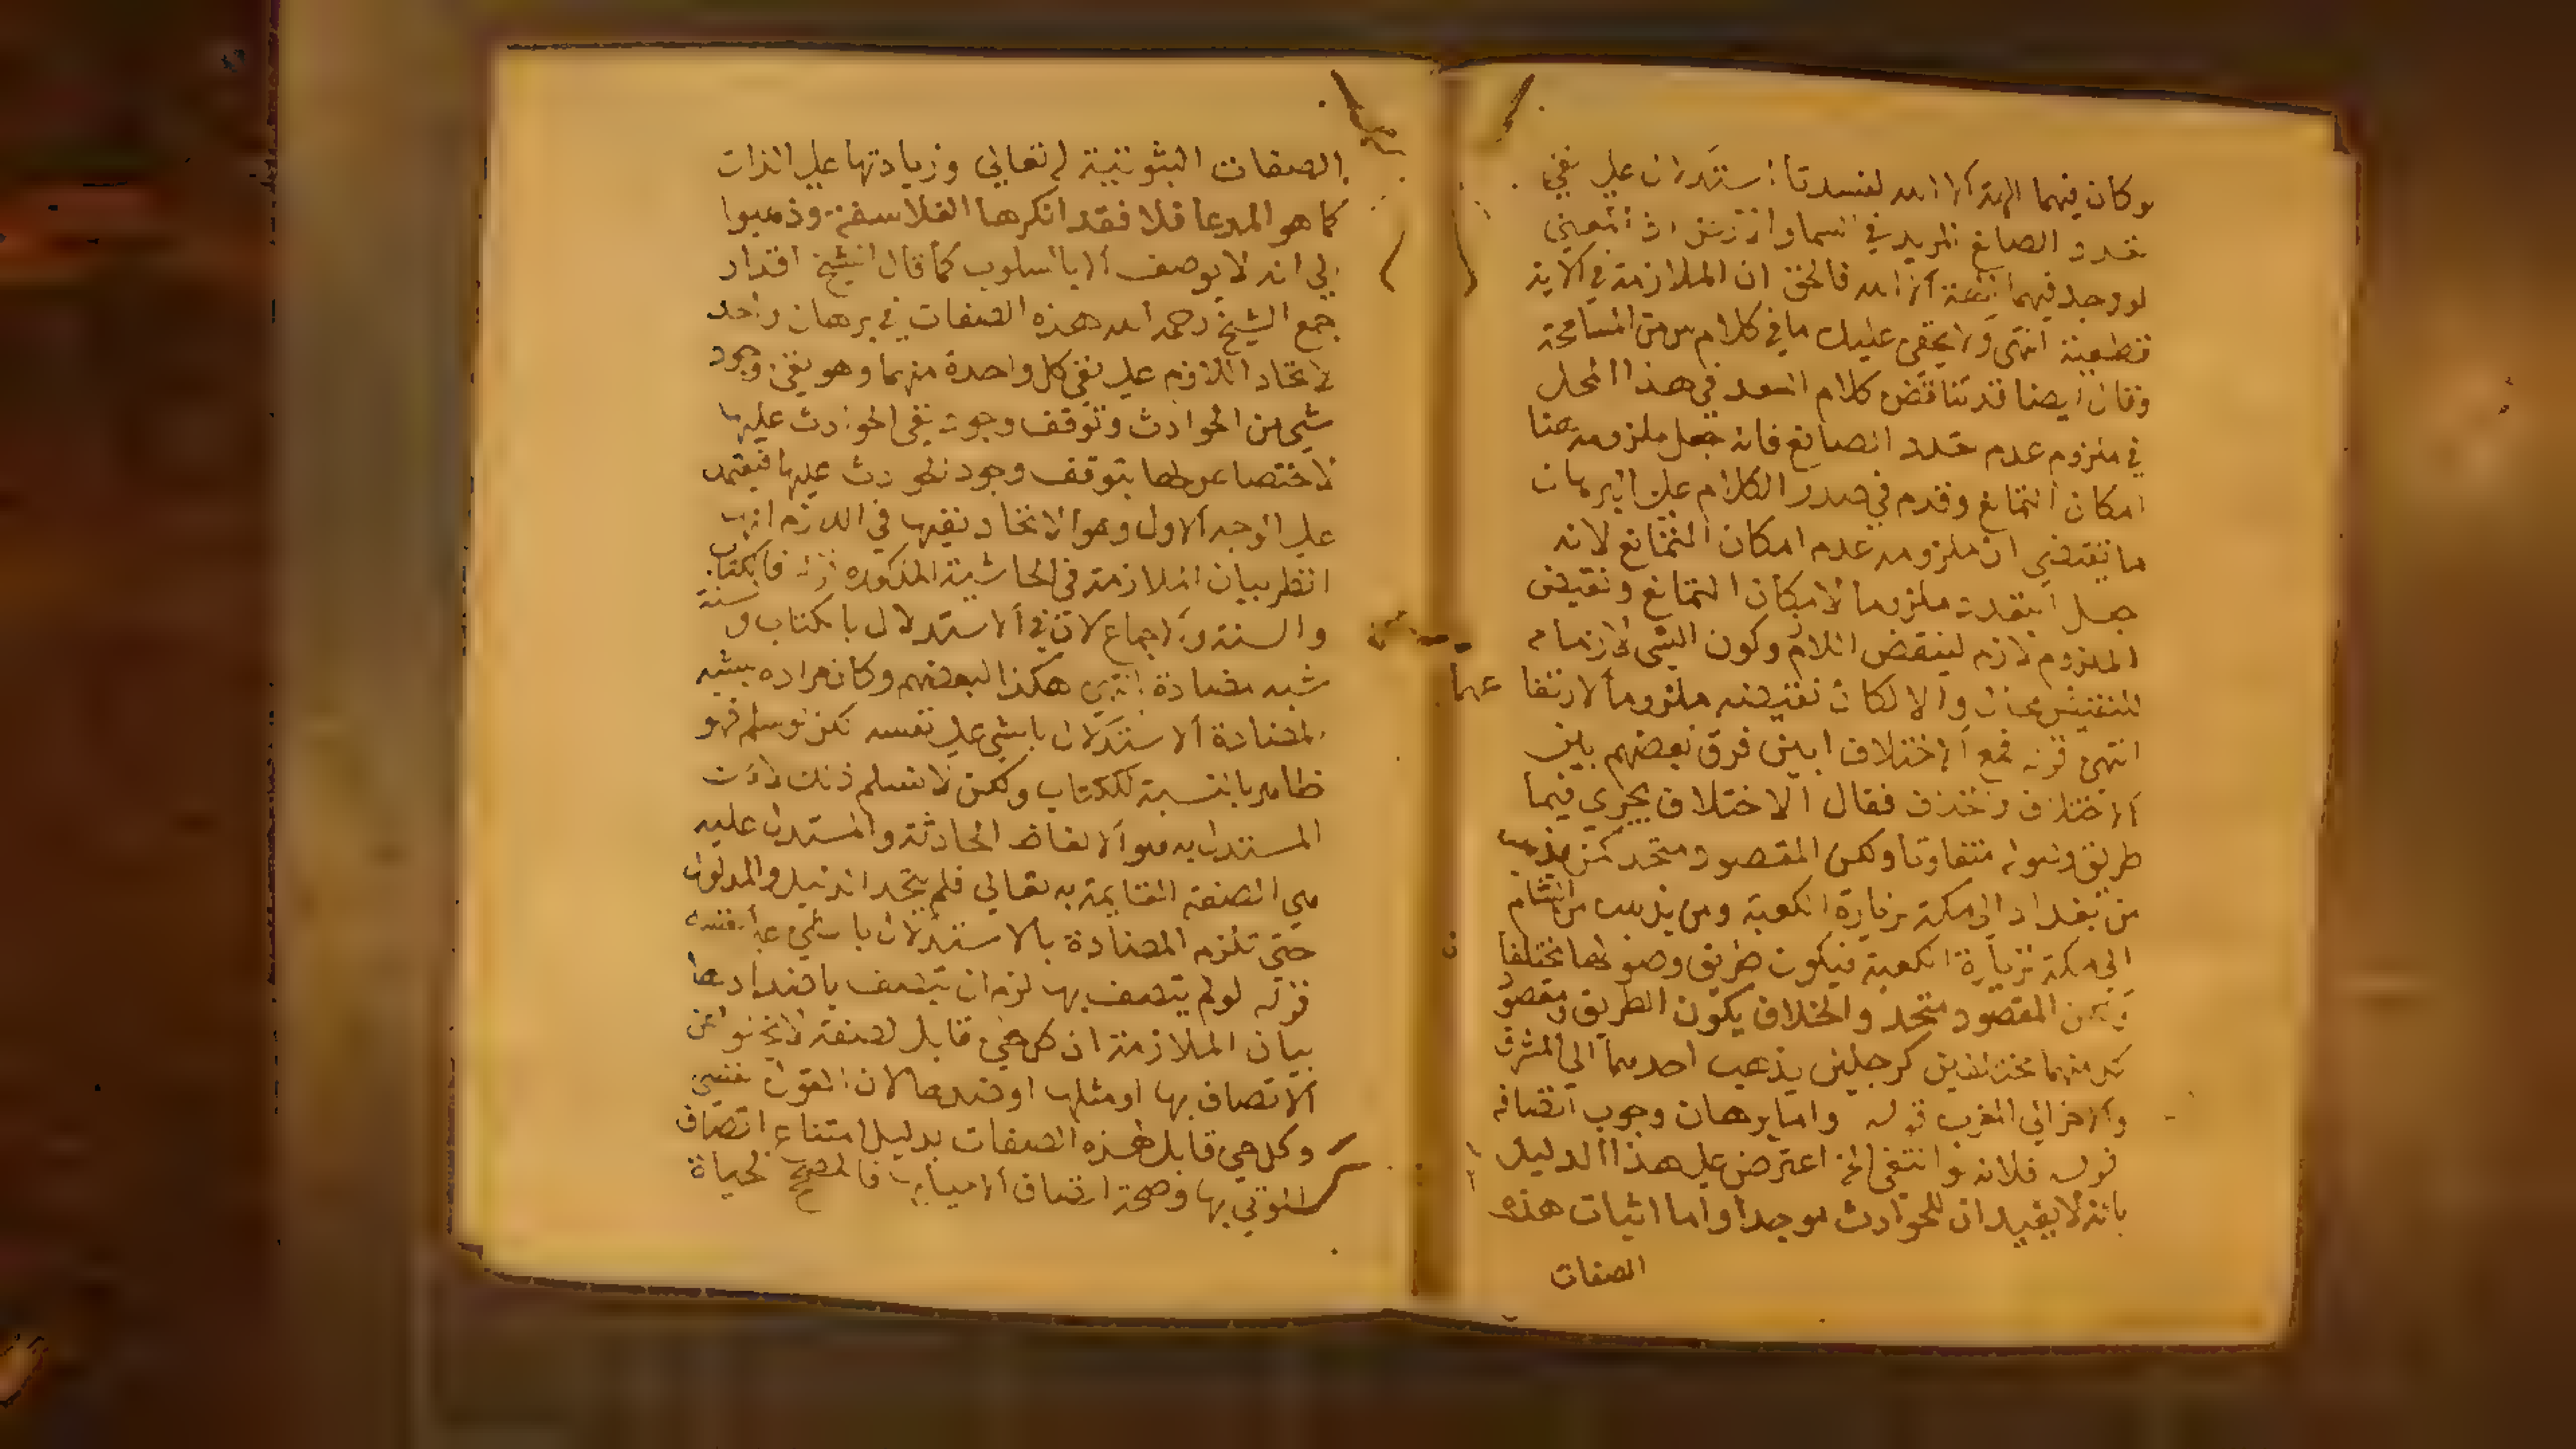 لو كان فيهما الهة الا الله لفسدتا استدلال على نفي
تعدد الصانع المريد في السما والارض اذ المعنى
لو وجد فيهما الهة الا الله فالحق ان الملازمة في الاية
قطعية انتهى ولا يخفى عليك ما في كلام س من المسامحة
وقال ايضا قد تناقض كلام السعد في هذا المحل
في ملزوم عدم تعدد الصانع فانه جعل ملزومه هنا
امكان التمانع وقدم في صدر الكلام على البرهان
ما يقتضي ان ملزومه عدم امكان التمانع لانه
جعل التعدد ملزوما لامكان التمانع ونقيض
الملزوم لازم لنقيض اللازم وكون الشي لازما
للنقيضين محال والا لكان نقيضه ملزوما لارتفاعهما
انتهى قوله فمع الاختلاف ابين فرق بعضهم بين
الاختلاف والخلاف فقال الاختلاف يجري فيما
طريق وصوله متفاوتا ولكن المقصود متحد كمن يذهب
من بغداد الى مكة لزيارة الكعبة ومن يذهب من الشام
الى مكة لزيارة الكعبة فيكون طريق وصولهما مختلفا
ولكن المقصود متحد والخلاف يكون الطريق ومقصود
كل منهما مختلفين كرجلين يذهب احدهما الى المشرق
والاخر الى المغرب قوله واما برهان وجوب اتصافه
قوله فلانه لو انتفى الخ اعترض على هذا الدليل
بانه لا يفيد ان للحوادث موجدا واما اثبات هذه
الصفات
الصفات الثبوتية له تعالى وزيادتها على الذات
كما هو المدعا فلا فقد انكرها الفلاسفة وذهبوا
الى انه لا يوصف الا بالسلوب كما قال الشيخ
جمع الشيخ رحمه الله هذه الصفات في برهان واحد
لاتحاد اللازم على نفي كل واحدة منهما وهو نفي وجود
شي من الحوادث وتوقف وجود نفي الحوادث عليها
لاختصاصها بتوقف وجود الحوادث عليها
على الوجه الاول وهو الاتحاد نفيها في اللازم
انظر بيان الملازمة في الحاشية المذكوره قوله فالكتاب
والسنة والاجماع لان في الاستدلال بالكتاب والسنة
شبه مصادرة انتهى هكذا لبعضهم وكان مراده بشبه
المصادرة الاستدلال بالشي على نفسه لكن لو سلم فهو
ظاهر بالنسبة للكتاب ولكن لا نسلم ذلك لان
المستدل به هو الالفاظ الحادثة والمستدل عليه
هي الصفة القايمة به تعالى فلم يتحد الدليل والمدلول
حتى تلزم المصادرة بالاستدلال بالشي على نفسه
قوله لو لم يتصف بها لزم ان يتصف باضدادها
بيان الملازمة ان كل حي قابل لصفة لا يخلوا عن
الاتصاف بها او مثلها او ضدها لان القول
وكل حي قابل لهذه الصفات بدليل امتناع اتصاف
الموتى بها وصحة اتصاف الاحيا بها فالمصحح الحياة